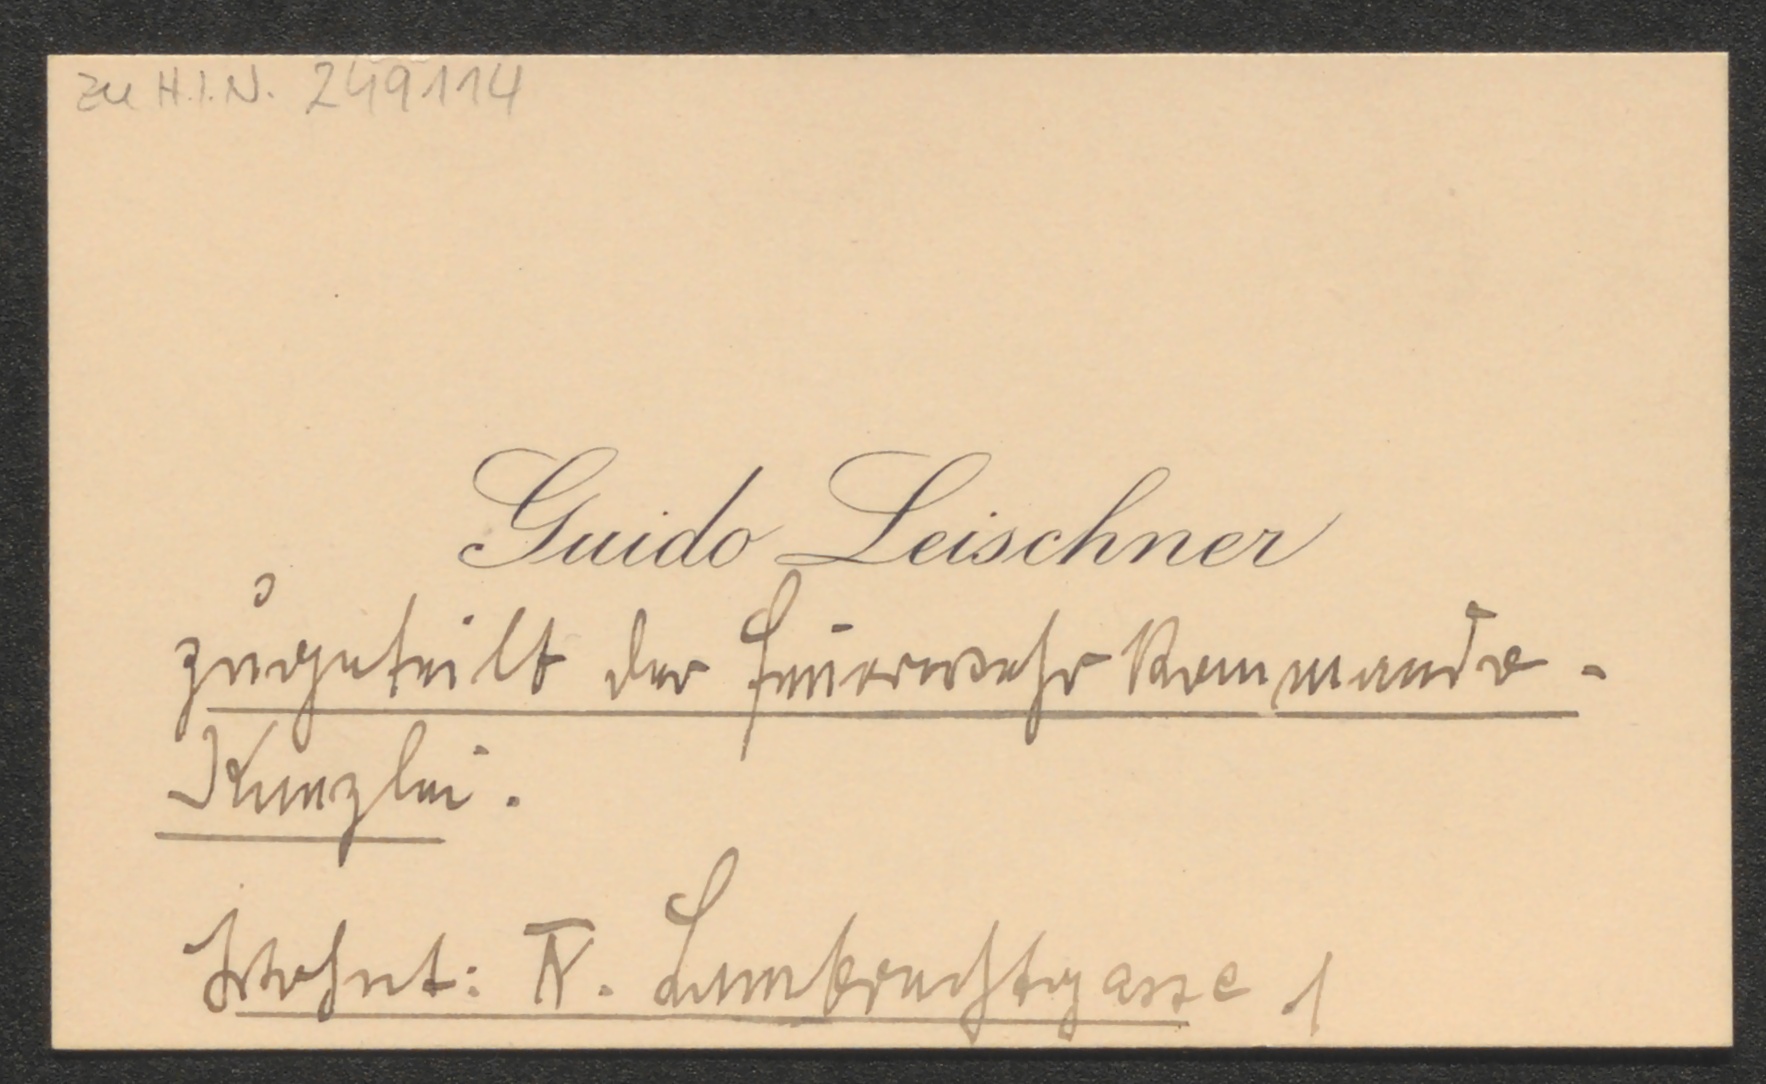 zu H.I.N. 249114
Guido Leischner
zugeteilt der Feuerwehr Kommando-
Kanzlei.
Wohnt: IV. Lambrechtgasse 1